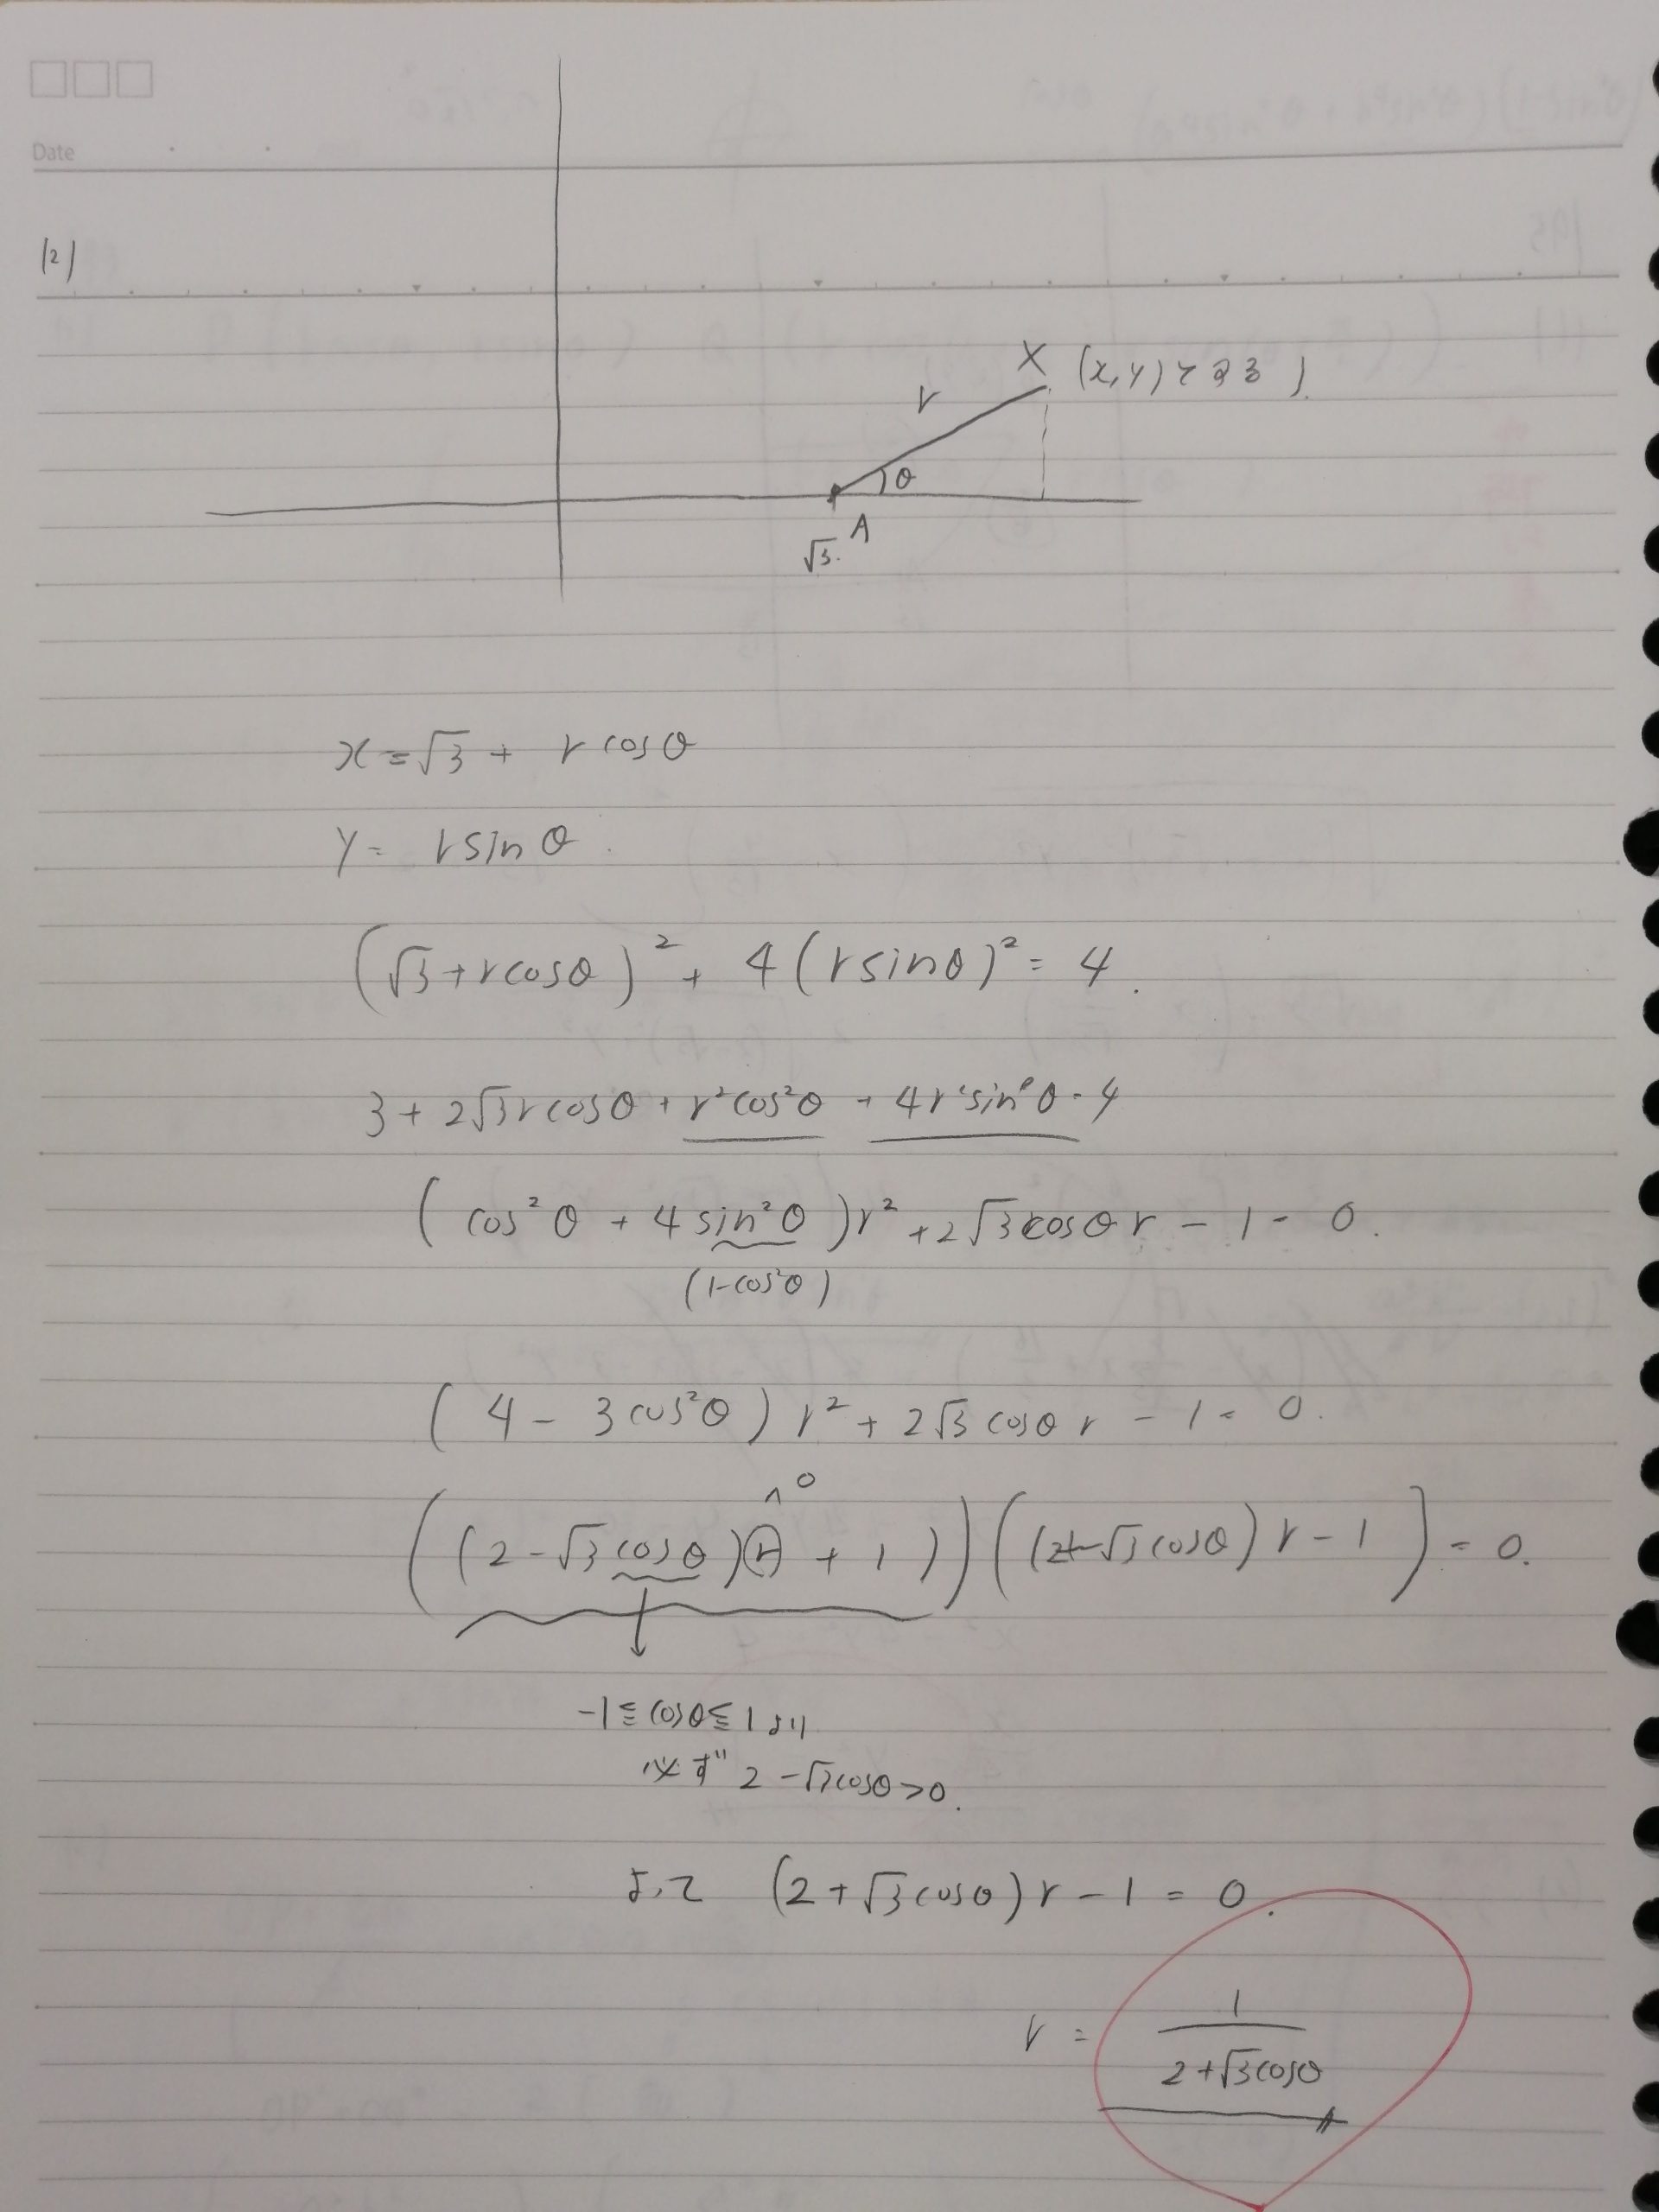 Date
(2)
X (x,y)とする)
r
θ
A
√3
x=√3 + r cosθ
y= rsinθ
(√3+rcosθ)² + 4(rsinθ)² = 4
3+2√3rcosθ+r²cos²θ+4r²sin²θ=4
(cos²θ+4sin²θ)r²+2√3cosθr-1=0.
(1-cos²θ)
(4-3cos²θ)r²+2√3cosθr-1=0.
^0
((2-√3cosθ)r+1))((2+√3cosθ)r-1)=0.
-1≦cosθ≦1より
必ず 2-√3cosθ>0.
よって (2+√3cosθ)r-1=0.
r = 1
2+√3cosθ